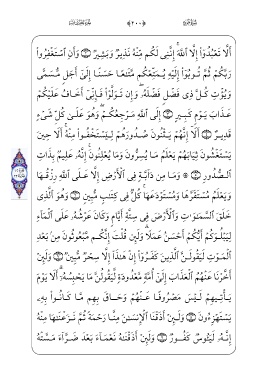 أَلَّا تَعْبُدُوٓا۟ إِلَّا ٱللَّهَ ۚ إِنَّنِى لَكُم مِّنْهُ نَذِيرٌ وَبَشِيرٌ ۝ وَأَنِ ٱسْتَغْفِرُوا۟
رَبَّكُمْ ثُمَّ تُوبُوٓا۟ إِلَيْهِ يُمَتِّعْكُم مَّتَٰعًا حَسَنًا إِلَىٰٓ أَجَلٍ مُّسَمًّى
وَيُؤْتِ كُلَّ ذِى فَضْلٍ فَضْلَهُۥ ۖ وَإِن تَوَلَّوْا۟ فَإِنِّىٓ أَخَافُ عَلَيْكُمْ
عَذَابَ يَوْمٍ كَبِيرٍ ۝ إِلَى ٱللَّهِ مَرْجِعُكُمْ ۖ وَهُوَ عَلَىٰ كُلِّ شَىْءٍ
قَدِيرٌ ۝ أَلَآ إِنَّهُمْ يَثْنُونَ صُدُورَهُمْ لِيَسْتَخْفُوا۟ مِنْهُ ۚ أَلَا حِينَ
يَسْتَغْشُونَ ثِيَابَهُمْ يَعْلَمُ مَا يُسِرُّونَ وَمَا يُعْلِنُونَ ۚ إِنَّهُۥ عَلِيمٌۢ بِذَاتِ
ٱلصُّدُورِ ۝ وَمَا مِن دَآبَّةٍ فِى ٱلْأَرْضِ إِلَّا عَلَى ٱللَّهِ رِزْقُهَا
وَيَعْلَمُ مُسْتَقَرَّهَا وَمُسْتَوْدَعَهَا ۚ كُلٌّ فِى كِتَٰبٍ مُّبِينٍ ۝ وَهُوَ ٱلَّذِى
خَلَقَ ٱلسَّمَٰوَٰتِ وَٱلْأَرْضَ فِى سِتَّةِ أَيَّامٍ وَكَانَ عَرْشُهُۥ عَلَى ٱلْمَآءِ
لِيَبْلُوَكُمْ أَيُّكُمْ أَحْسَنُ عَمَلًا ۗ وَلَئِن قُلْتَ إِنَّكُم مَّبْعُوثُونَ مِنۢ بَعْدِ
ٱلْمَوْتِ لَيَقُولَنَّ ٱلَّذِينَ كَفَرُوٓا۟ إِنْ هَٰذَآ إِلَّا سِحْرٌ مُّبِينٌ ۝ وَلَئِنْ
أَخَّرْنَا عَنْهُمُ ٱلْعَذَابَ إِلَىٰٓ أُمَّةٍ مَّعْدُودَةٍ لَّيَقُولُنَّ مَا يَحْبِسُهُۥٓ ۗ أَلَا يَوْمَ
يَأْتِيهِمْ لَيْسَ مَصْرُوفًا عَنْهُمْ وَحَاقَ بِهِم مَّا كَانُوا۟ بِهِۦ
يَسْتَهْزِءُونَ ۝ وَلَئِنْ أَذَقْنَا ٱلْإِنسَٰنَ مِنَّا رَحْمَةً ثُمَّ نَزَعْنَٰهَا مِنْهُ
إِنَّهُۥ لَيَـُٔوسٌ كَفُورٌ ۝ وَلَئِنْ أَذَقْنَٰهُ نَعْمَآءَ بَعْدَ ضَرَّآءَ مَسَّتْهُ